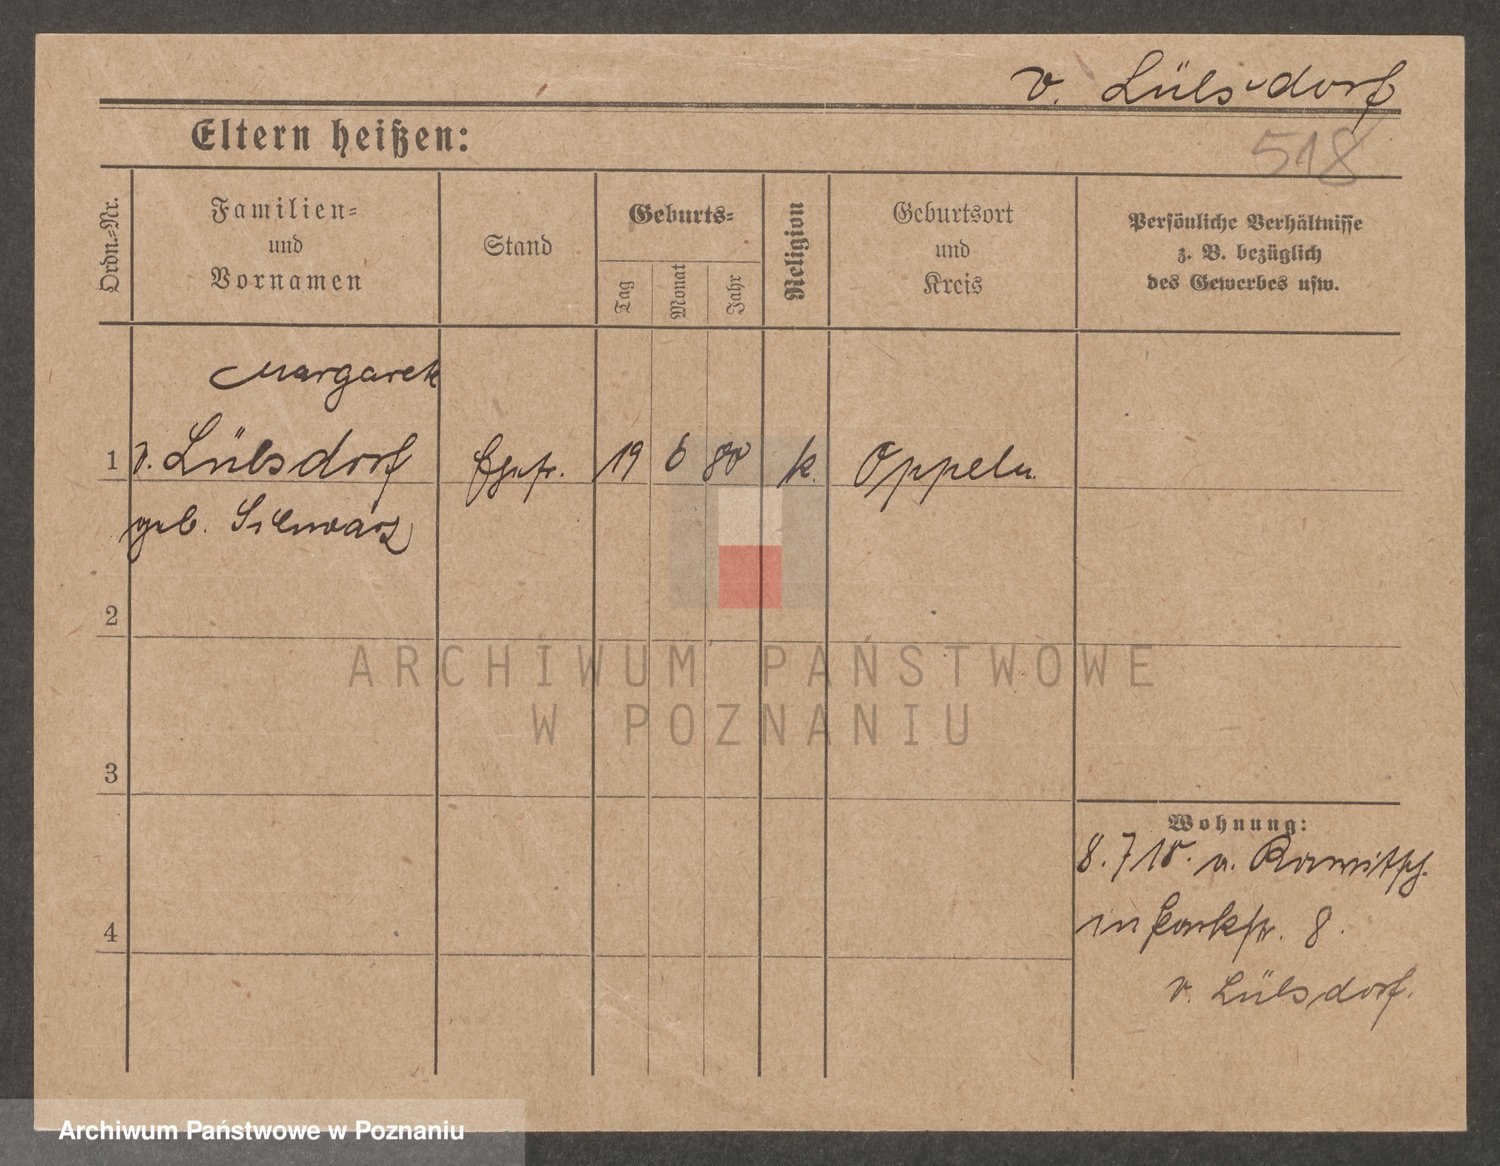 v. Lülsdorf
518
Eltern heißen:
Ordn.=Nr.
Familien=
und
Vornamen
Stand
Geburts=
Tag
Monat
Jahr
Religion
Geburtsort
und
Kreis
Persönliche Verhältnisse
z. B. bezüglich
des Gewerbes usw.
Margarete
1 v. Lülsdorf Ehefr. 19 6 80 k. Oppeln
geb. Schwarz
2
3
4
Wohnung:
8. 7 18. a. Rawitsch
in Parkstr. 8.
v. Lülsdorf.
ARCHIWUM PAŃSTWOWE
W POZNANIU
Archiwum Państwowe w Poznaniu